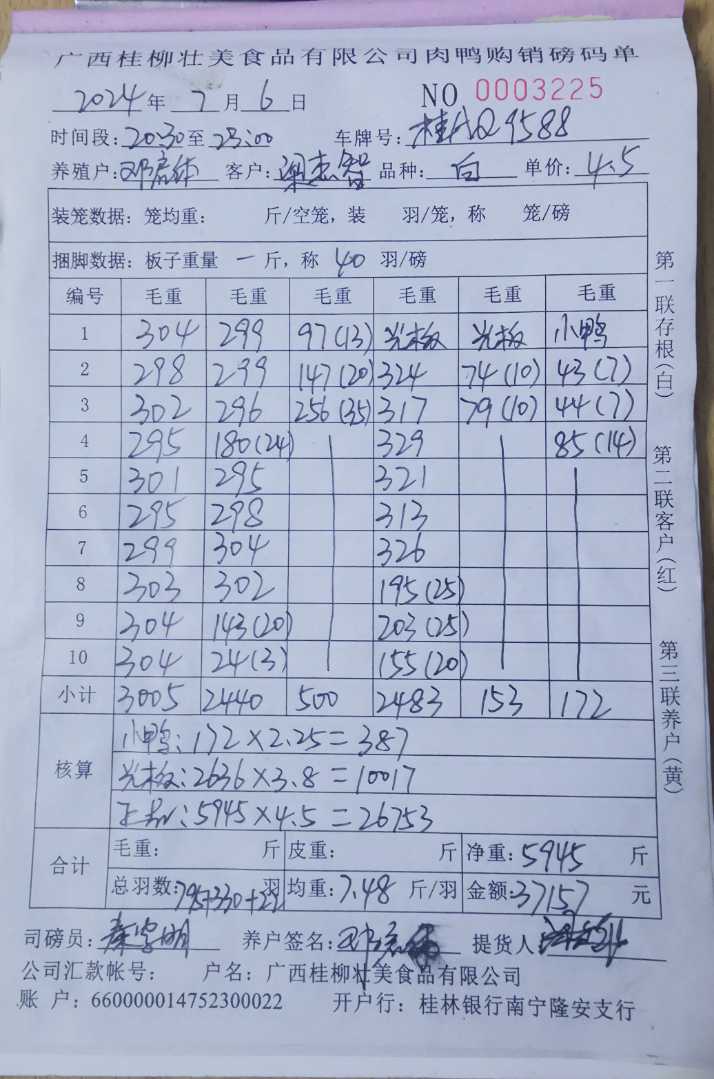 广西桂柳壮美食品有限公司肉鸭购销磅码单
2024年 7月 6日 NO 0003225
时间段:20:30至23:00 车牌号:桂AQ9588
养殖户: 客户:梁杰智 品种:白 单价:4.5
装笼数据:笼均重: 斤/空笼,装 羽/笼,称 笼/磅
捆脚数据:板子重量 一 斤,称 40 羽/磅
编号 毛重 毛重 毛重 毛重 毛重 毛重
1 304 299 97(13) 光板 光板 小鸭
2 298 299 147(20) 324 74(10) 43(7)
3 302 296 256(35) 317 79(10) 44(7)
4 295 180(24) 329 85(14)
5 301 295 321
6 295 298 313
7 299 304 326
8 303 302 195(25)
9 304 143(20) 203(25)
10 304 24(3) 155(20)
小计 3005 2440 500 2483 153 172
核算
小鸭:172×2.25=387
光板:2636×3.8=10017
正品:5945×4.5=26753
合计
毛重: 斤 皮重: 斤 净重:5945 斤
总羽数:795+330+ 羽 均重:7.48 斤/羽 金额:37157 元
司磅员: 养户签名: 提货人:
公司汇款帐号: 户名:广西桂柳壮美食品有限公司
账 户:660000014752300022 开户行:桂林银行南宁隆安支行
第一联存根(白) 第二联客户(红) 第三联养户(黄)